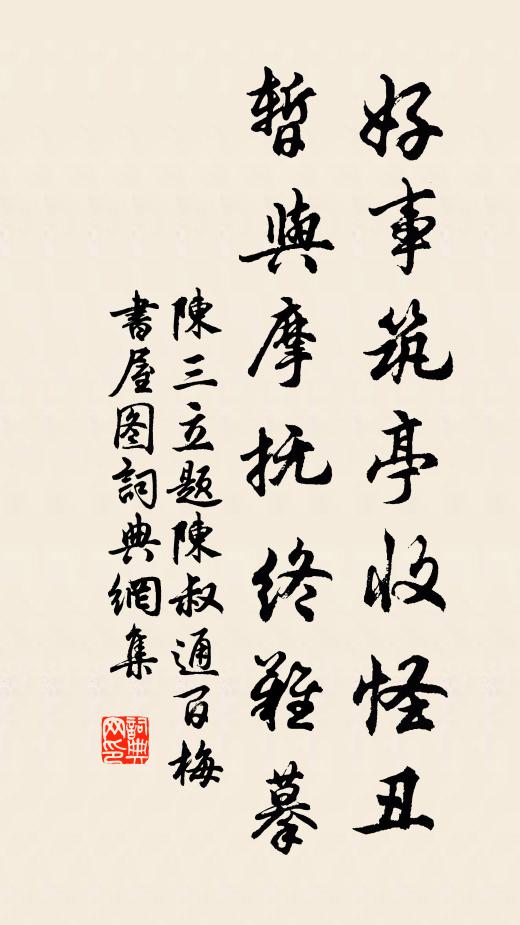 好事筑亭收怪丑
暫與摩抚終難摹
陳三立題陳叔通百梅
書屋图詞典網集
詞典網印